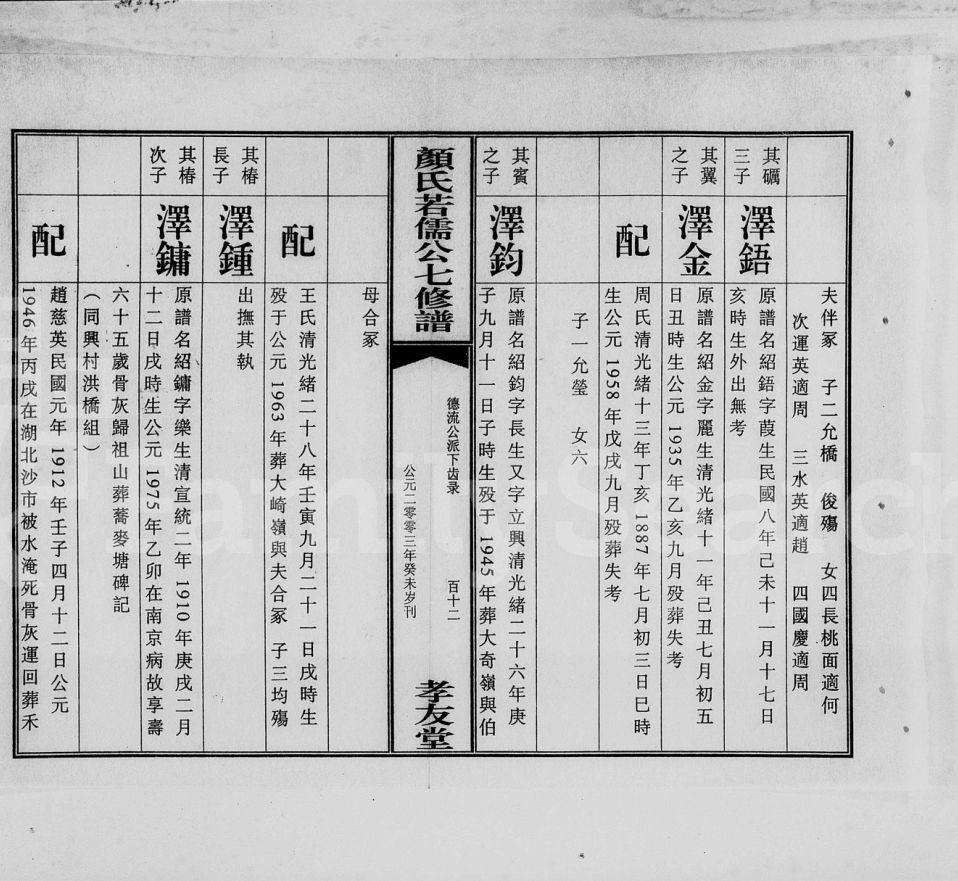 夫伴冢 子二允橋 俊殤 女四長桃面適何
次運英適周 三水英適趙 四國慶適周
其礪
三子
澤鋙
原譜名紹鋙字葭生民國八年己未十一月十七日
亥時生外出無考
其翼
之子
澤金
原譜名紹金字麗生清光緒十一年己丑七月初五
日丑時生公元 1935 年乙亥九月殁葬失考
配
周氏清光緒十三年丁亥 1887 年七月初三日巳時
生公元 1958 年戊戌九月殁葬失考
子一允瑩 女六
其賓
之子
澤鈞
原譜名紹鈞字長生又字立興清光緒二十六年庚
子九月十一日子時生殁于 1945 年葬大奇嶺與伯
顏氏若儒公七修譜
德流公派下齿录
百十二
公元二零零三年癸未岁刊
孝友堂
母合冢
配
王氏清光緒二十八年壬寅九月二十一日戌時生
殁于公元 1963 年葬大崎嶺與夫合冢 子三均殤
其椿
長子
澤鍾
出撫其執
其椿
次子
澤鏞
原譜名紹鏞字樂生清宣統二年 1910 年庚戌二月
十二日戌時生公元 1975 年乙卯在南京病故享壽
六十五歲骨灰歸祖山葬蕎麥塘碑記
（同興村洪橋組）
配
趙慈英民國元年 1912 年壬子四月十二日公元
1946 年丙戌在湖北沙市被水淹死骨灰運回葬禾
FamilySearch